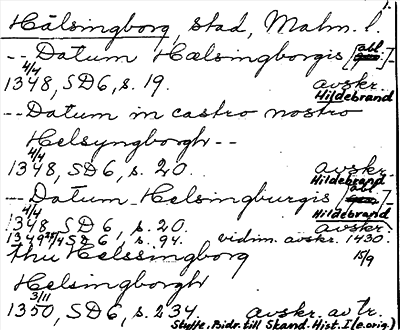 1.
Hälsingborg, stad, Malm. l.
-- Datum Hælsingborgis [abl.]-
4/4
1348, SD 6, s. 19. avskr.
Hildebrand
-- Datum in castro nostro
Helsyngborgh --
4/4
1348, SD 6, s. 20. avskr.
Hildebrand
-- Datum Helsingburgis [abl.]-
4/4 Hildebrand
1348, SD 6, s. 20. avskr.
1349 /4 SD 6, s. 94. vidim. avskr. 1430.
thu Helssingborg 15/9
Helsingborgh
3/11
1350, SD 6, s. 234. avskr. av tr.
Steffe, Bidr. till Skand. Hist. I (e. orig.)